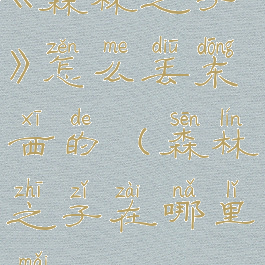 《森林之子
zěn me diū dōng
》怎么丢东
xī de sēn lín
西的（森林
zhī zǐ zài nǎ lǐ
之子在哪里
mǎi